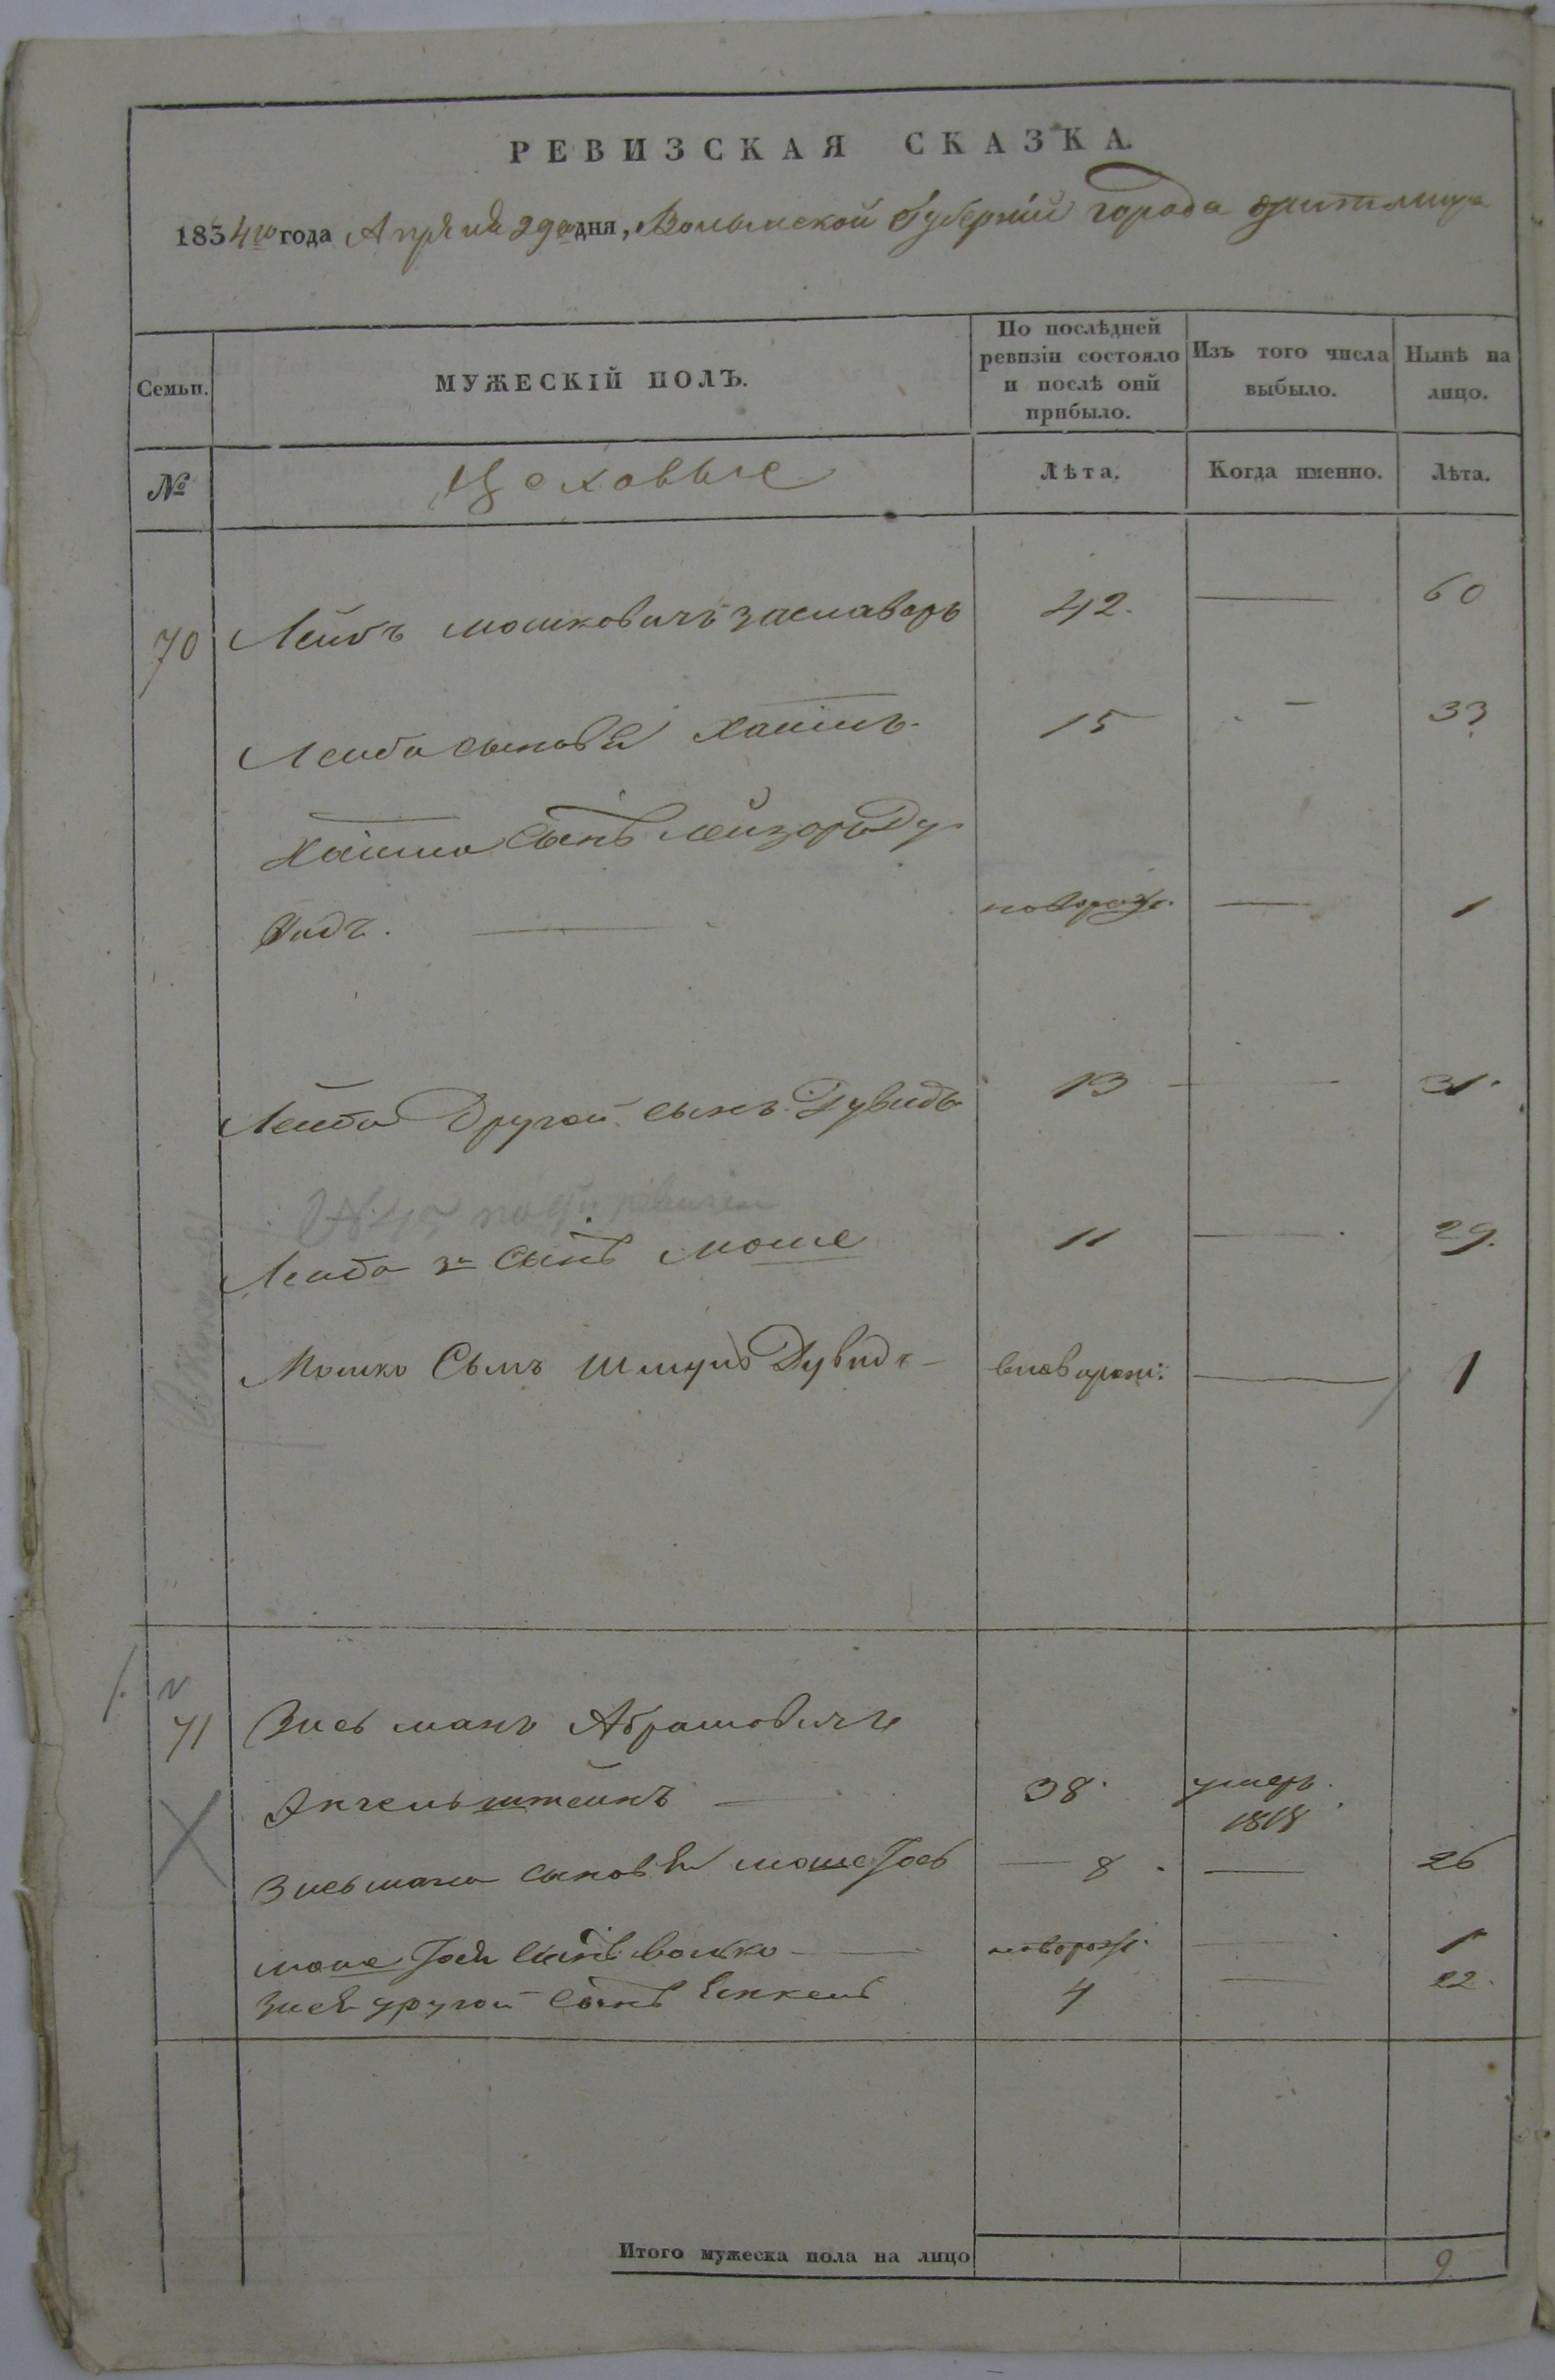 РЕВИЗСКАЯ СКАЗКА.
1834го года Апреля 29го дня, Волынской Губерніи города Житомира
Семьи. МУЖЕСКІЙ ПОЛЪ. По послѣдней ревизіи состояло и послѣ оний прибыло. Изъ того числа выбыло. Нынѣ на лицо.
№ Цеховые Лѣта. Когда именно. Лѣта.
70 Лейбъ Мошковичъ Заславеръ 42. — 60
Лейба сыновья Хаимъ 15 — 33
Хаима сынъ Лейзоръ Ду
видъ. — новорож. — 1
Лейба Другой сынъ Дувидъ 13 — 31.
№ 45 по 9й ревизіи
Лейба 3й сынъ Моше 11 — 29.
Мошко Сынъ Шмуль Дувидъ — 1
71 Зисьманъ Абрамовичъ
штейнъ — 38. умеръ.
1818
Зисьмана сыновья Моше Іось — 8. — 26
Моше Іося сынъ Волько — новорож. — 1
Зися другой сынъ Янкель 4 — 22.
Итого мужеска пола на лицо 9.